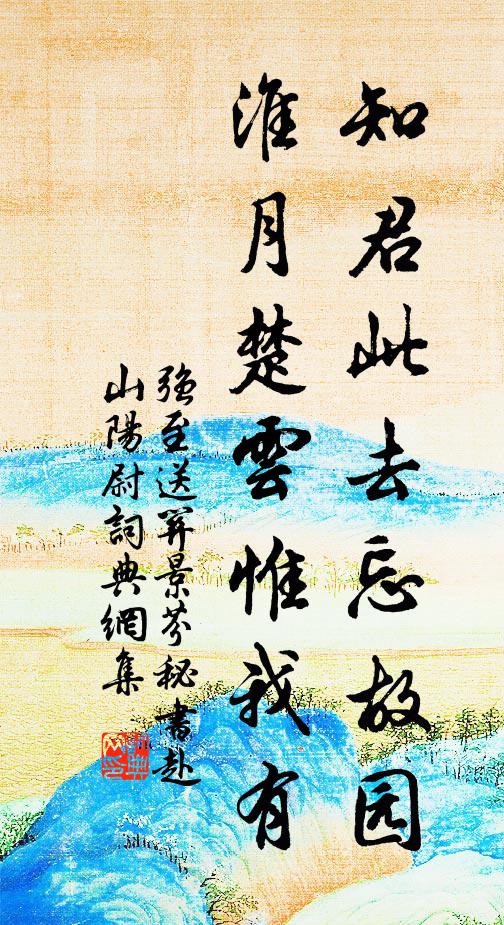 知君此去忘故园
淮月楚雲惟我有
强至送笄景芬秘書赴
山陽尉詞典網集